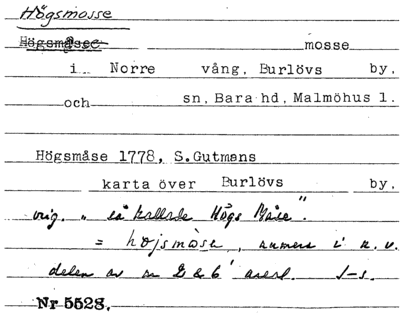 Högsmosse
Högsmåse mosse
i Norre vång, Burlövs by.
och sn, Bara hd, Malmöhus l.
Högsmåse 1778, S.Gutmans
karta över Burlövs by.
"så kallade Högs Måse".
= höjsmåse, numera i n. v.
delen av nr 2 & 6
Nr 5528.